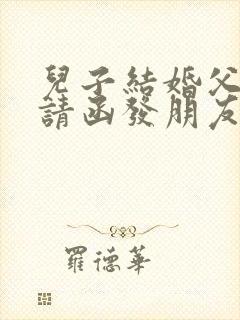 兒子結婚父
請函發朋友
羅德華